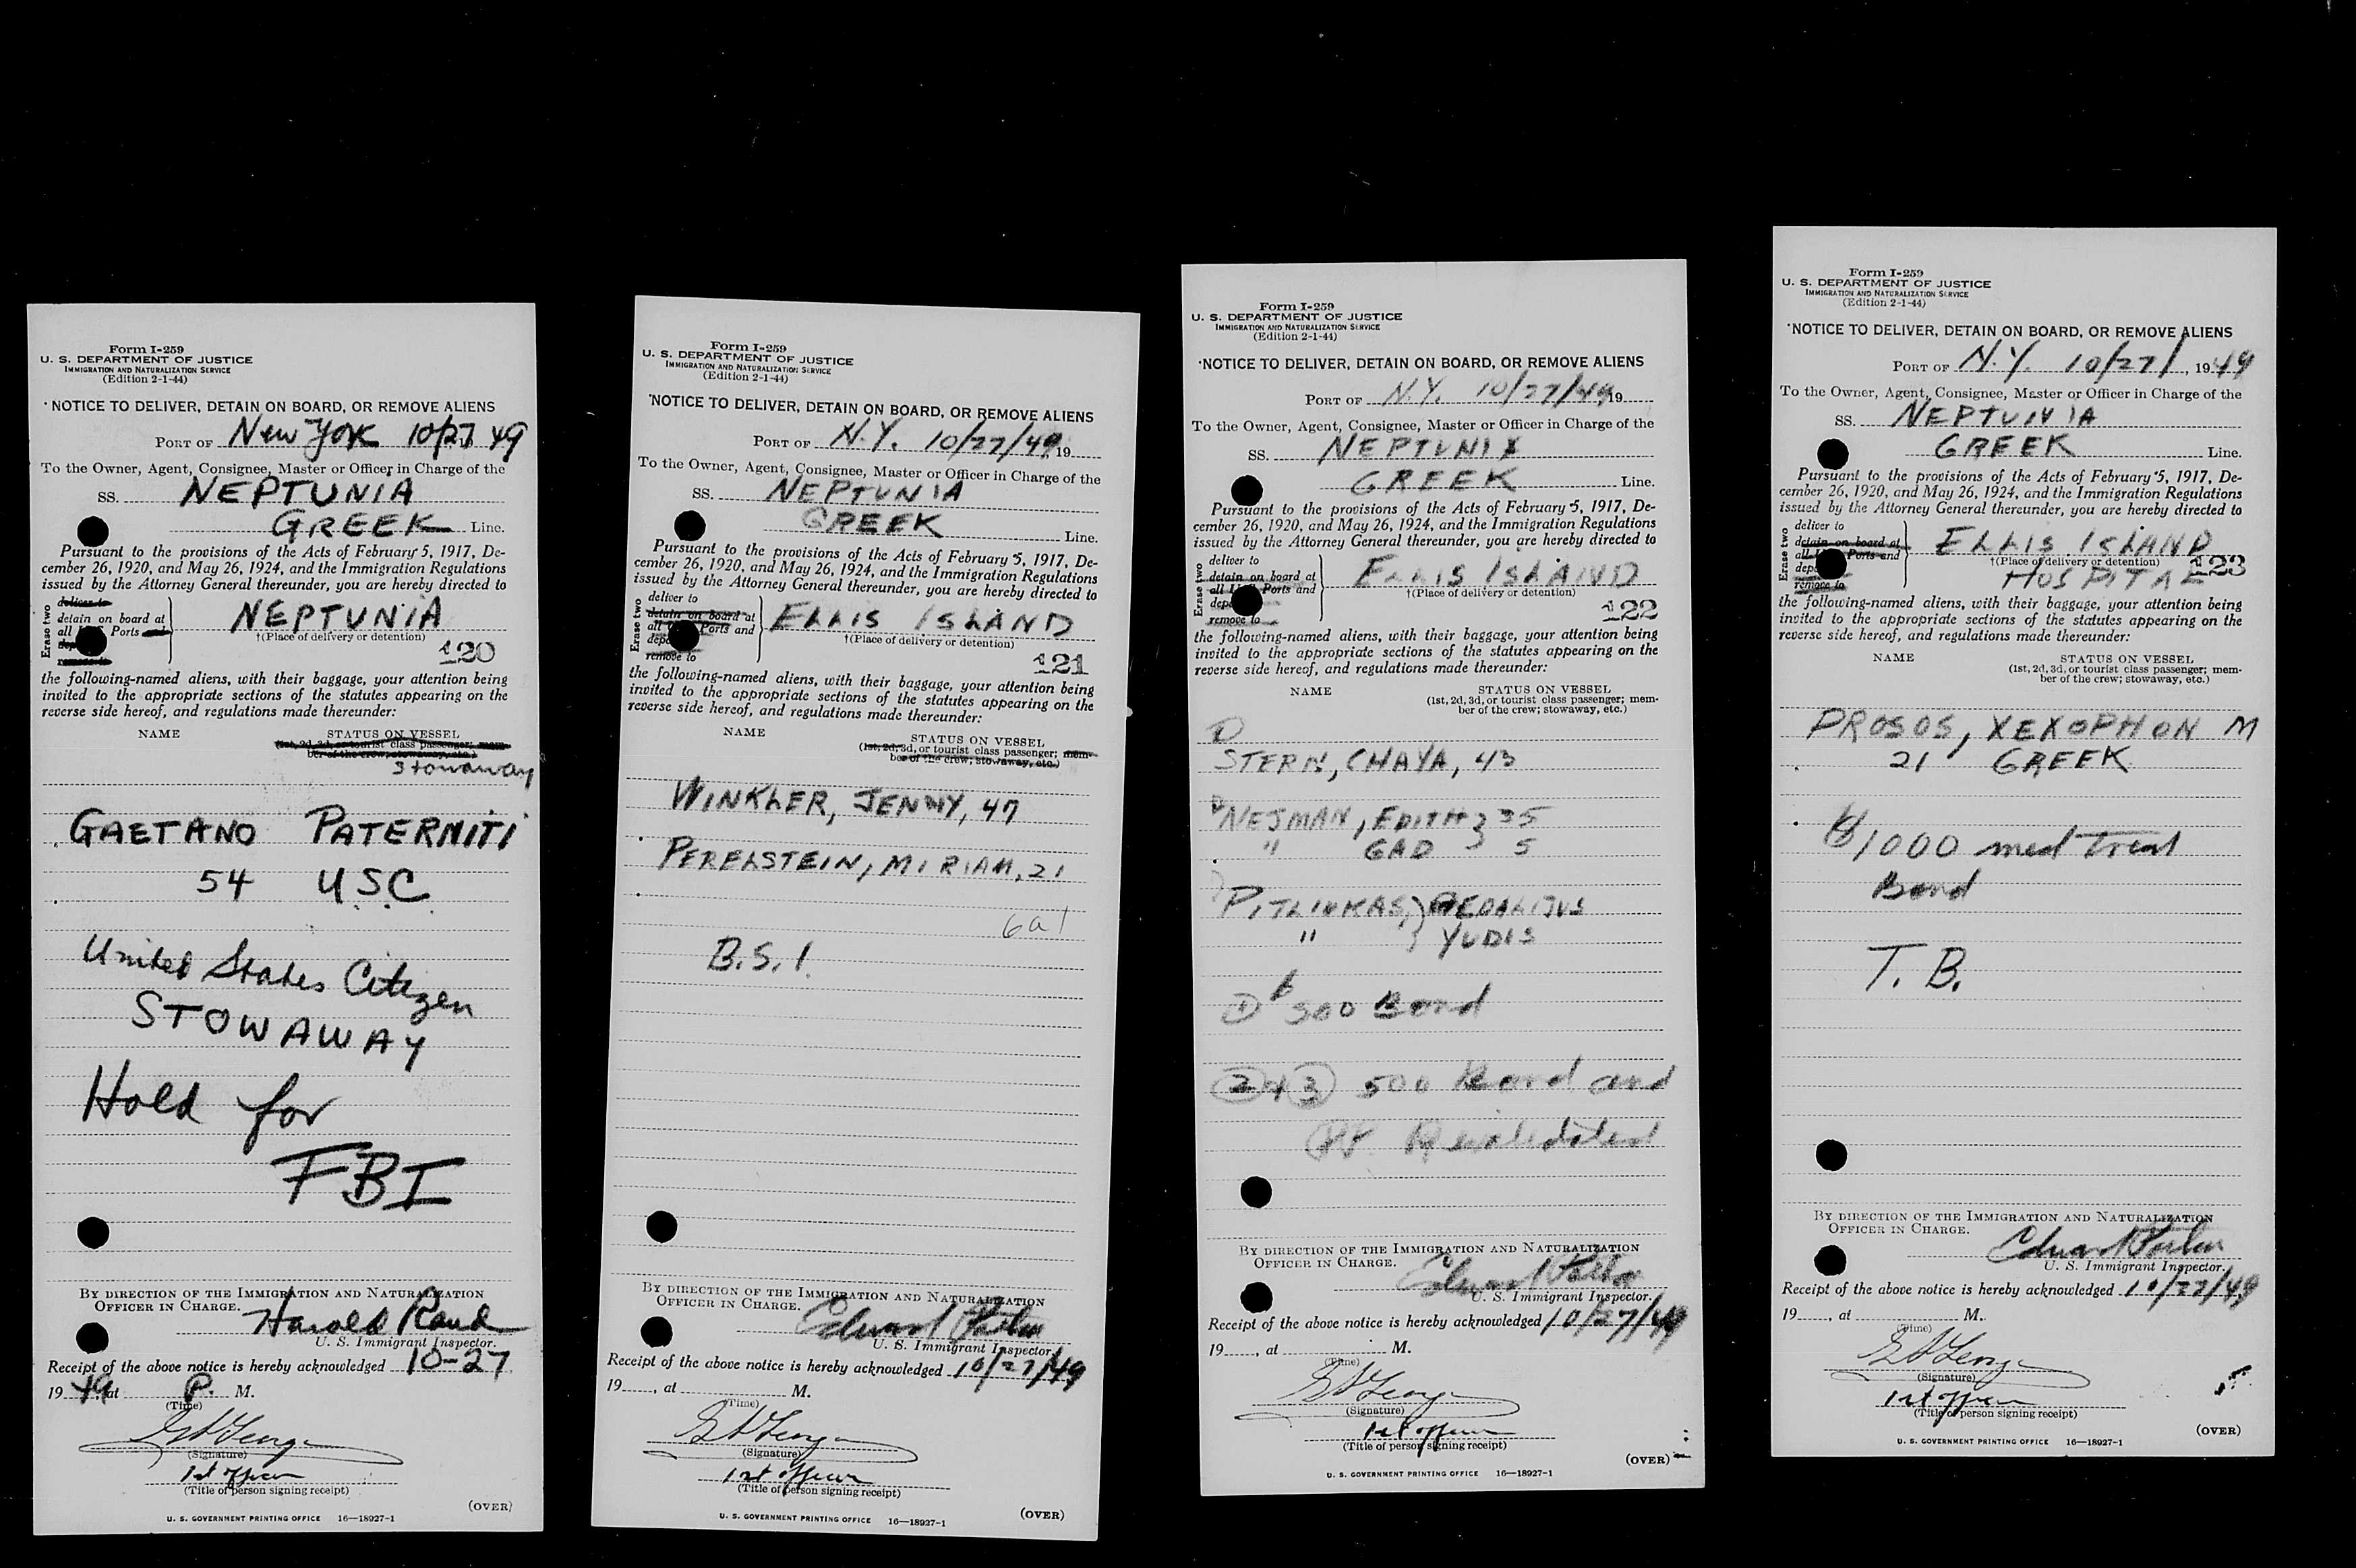 Form I-259
U. S. DEPARTMENT OF JUSTICE
IMMIGRATION AND NATURALIZATION SERVICE
(Edition 2-1-44)
NOTICE TO DELIVER, DETAIN ON BOARD, OR REMOVE ALIENS
PORT OF New York 10/27 49
To the Owner, Agent, Consignee, Master or Officer in Charge of the
SS. NEPTUNIA
GREEK Line.
Pursuant to the provisions of the Acts of February 5, 1917, De-
cember 26, 1920, and May 26, 1924, and the Immigration Regulations
issued by the Attorney General thereunder, you are hereby directed to
Erase two
deliver to
detain on board at
all Ports and
NEPTUNIA
†(Place of delivery or detention)
remove to
120
the following-named aliens, with their baggage, your attention being
invited to the appropriate sections of the statutes appearing on the
reverse side hereof, and regulations made thereunder:
NAME STATUS ON VESSEL
(1st, 2d, 3d, or tourist class passenger; mem-
ber of the crew; stowaway, etc.)
Stowaway
GAETANO PATERNITI
54 U.S.C.
United States Citizen
STOWAWAY
Hold for
FBI
BY DIRECTION OF THE IMMIGRATION AND NATURALIZATION
OFFICER IN CHARGE.
Harold Rand
U. S. Immigrant Inspector.
Receipt of the above notice is hereby acknowledged 10-27
1949, at P. M.
(Time)
(Signature)
1st officer
(Title of person signing receipt)
(OVER)
U. S. GOVERNMENT PRINTING OFFICE 16—18927-1
Form I-259
U. S. DEPARTMENT OF JUSTICE
IMMIGRATION AND NATURALIZATION SERVICE
(Edition 2-1-44)
NOTICE TO DELIVER, DETAIN ON BOARD, OR REMOVE ALIENS
PORT OF N.Y. 10/27/49 19
To the Owner, Agent, Consignee, Master or Officer in Charge of the
SS. NEPTUNIA
GREEK Line.
Pursuant to the provisions of the Acts of February 5, 1917, De-
cember 26, 1920, and May 26, 1924, and the Immigration Regulations
issued by the Attorney General thereunder, you are hereby directed to
Erase two
deliver to
detain on board at
all Ports and
ELLIS ISLAND
†(Place of delivery or detention)
remove to
121
the following-named aliens, with their baggage, your attention being
invited to the appropriate sections of the statutes appearing on the
reverse side hereof, and regulations made thereunder:
NAME STATUS ON VESSEL
(1st, 2d, 3d, or tourist class passenger; mem-
ber of the crew; stowaway, etc.)
WINKLER, JENNY, 47
PERELSTEIN, MIRIAM, 21
B.S.I.
BY DIRECTION OF THE IMMIGRATION AND NATURALIZATION
OFFICER IN CHARGE.
U. S. Immigrant Inspector.
Receipt of the above notice is hereby acknowledged 10/27/49
19 , at M.
(Time)
(Signature)
1st officer
(Title of person signing receipt)
(OVER)
U. S. GOVERNMENT PRINTING OFFICE 16—18927-1
Form I-259
U. S. DEPARTMENT OF JUSTICE
IMMIGRATION AND NATURALIZATION SERVICE
(Edition 2-1-44)
NOTICE TO DELIVER, DETAIN ON BOARD, OR REMOVE ALIENS
PORT OF N.Y. 10/27/49 19
To the Owner, Agent, Consignee, Master or Officer in Charge of the
SS. NEPTUNIA
GREEK Line.
Pursuant to the provisions of the Acts of February 5, 1917, De-
cember 26, 1920, and May 26, 1924, and the Immigration Regulations
issued by the Attorney General thereunder, you are hereby directed to
Erase two
deliver to
detain on board at
all Ports and
ELLIS ISLAND
†(Place of delivery or detention)
remove to
122
the following-named aliens, with their baggage, your attention being
invited to the appropriate sections of the statutes appearing on the
reverse side hereof, and regulations made thereunder:
NAME STATUS ON VESSEL
(1st, 2d, 3d, or tourist class passenger; mem-
ber of the crew; stowaway, etc.)
①
STERN, CHAYA, 43
NEJMAN, EDITH } 35
" GAD } 5
PITLIUKAS, } GEDALIJUS
" } YUDIS
① $500 Bond
② + ③ 500 Bond and
Revalidated
BY DIRECTION OF THE IMMIGRATION AND NATURALIZATION
OFFICER IN CHARGE.
U. S. Immigrant Inspector.
Receipt of the above notice is hereby acknowledged 10/27/49
19 , at M.
(Time)
(Signature)
1st officer
(Title of person signing receipt)
(OVER)
U. S. GOVERNMENT PRINTING OFFICE 16—18927-1
Form I-259
U. S. DEPARTMENT OF JUSTICE
IMMIGRATION AND NATURALIZATION SERVICE
(Edition 2-1-44)
NOTICE TO DELIVER, DETAIN ON BOARD, OR REMOVE ALIENS
PORT OF N.Y. 10/27/, 1949
To the Owner, Agent, Consignee, Master or Officer in Charge of the
SS. NEPTUNIA
GREEK Line.
Pursuant to the provisions of the Acts of February 5, 1917, De-
cember 26, 1920, and May 26, 1924, and the Immigration Regulations
issued by the Attorney General thereunder, you are hereby directed to
Erase two
deliver to
detain on board at
all Ports and
ELLIS ISLAND
†(Place of delivery or detention)
HOSPITAL
remove to
123
the following-named aliens, with their baggage, your attention being
invited to the appropriate sections of the statutes appearing on the
reverse side hereof, and regulations made thereunder:
NAME STATUS ON VESSEL
(1st, 2d, 3d, or tourist class passenger; mem-
ber of the crew; stowaway, etc.)
PROSOS, XEXOPHON M
21 GREEK
$1000 med treat
Bond
T. B.
BY DIRECTION OF THE IMMIGRATION AND NATURALIZATION
OFFICER IN CHARGE.
U. S. Immigrant Inspector.
Receipt of the above notice is hereby acknowledged 10/27/49
19 , at M.
(Time)
(Signature)
1st officer
(Title of person signing receipt)
(OVER)
U. S. GOVERNMENT PRINTING OFFICE 16—18927-1